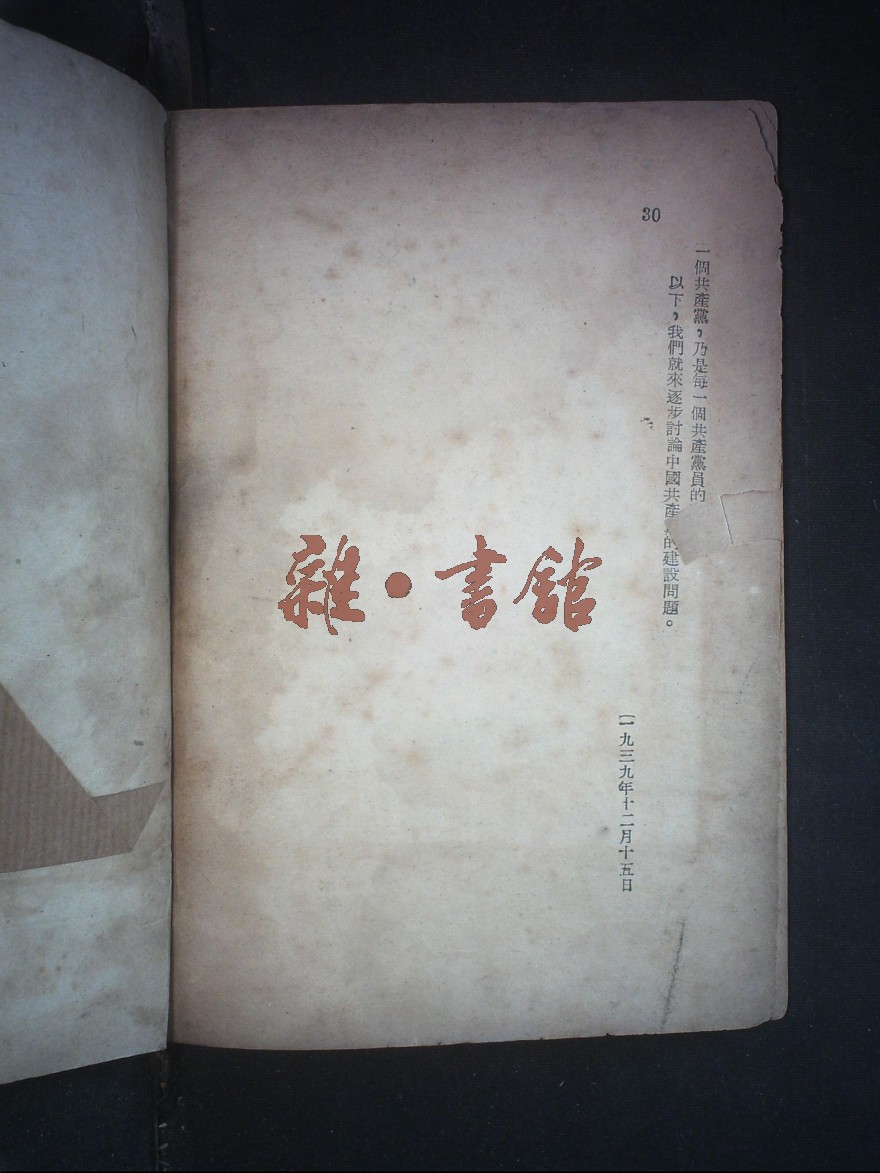 30
一個共產黨，乃是每一個共產黨員的
以下，我們就來逐步討論中國共產 的建設問題。
一九三九年十二月十五日
雜·書館